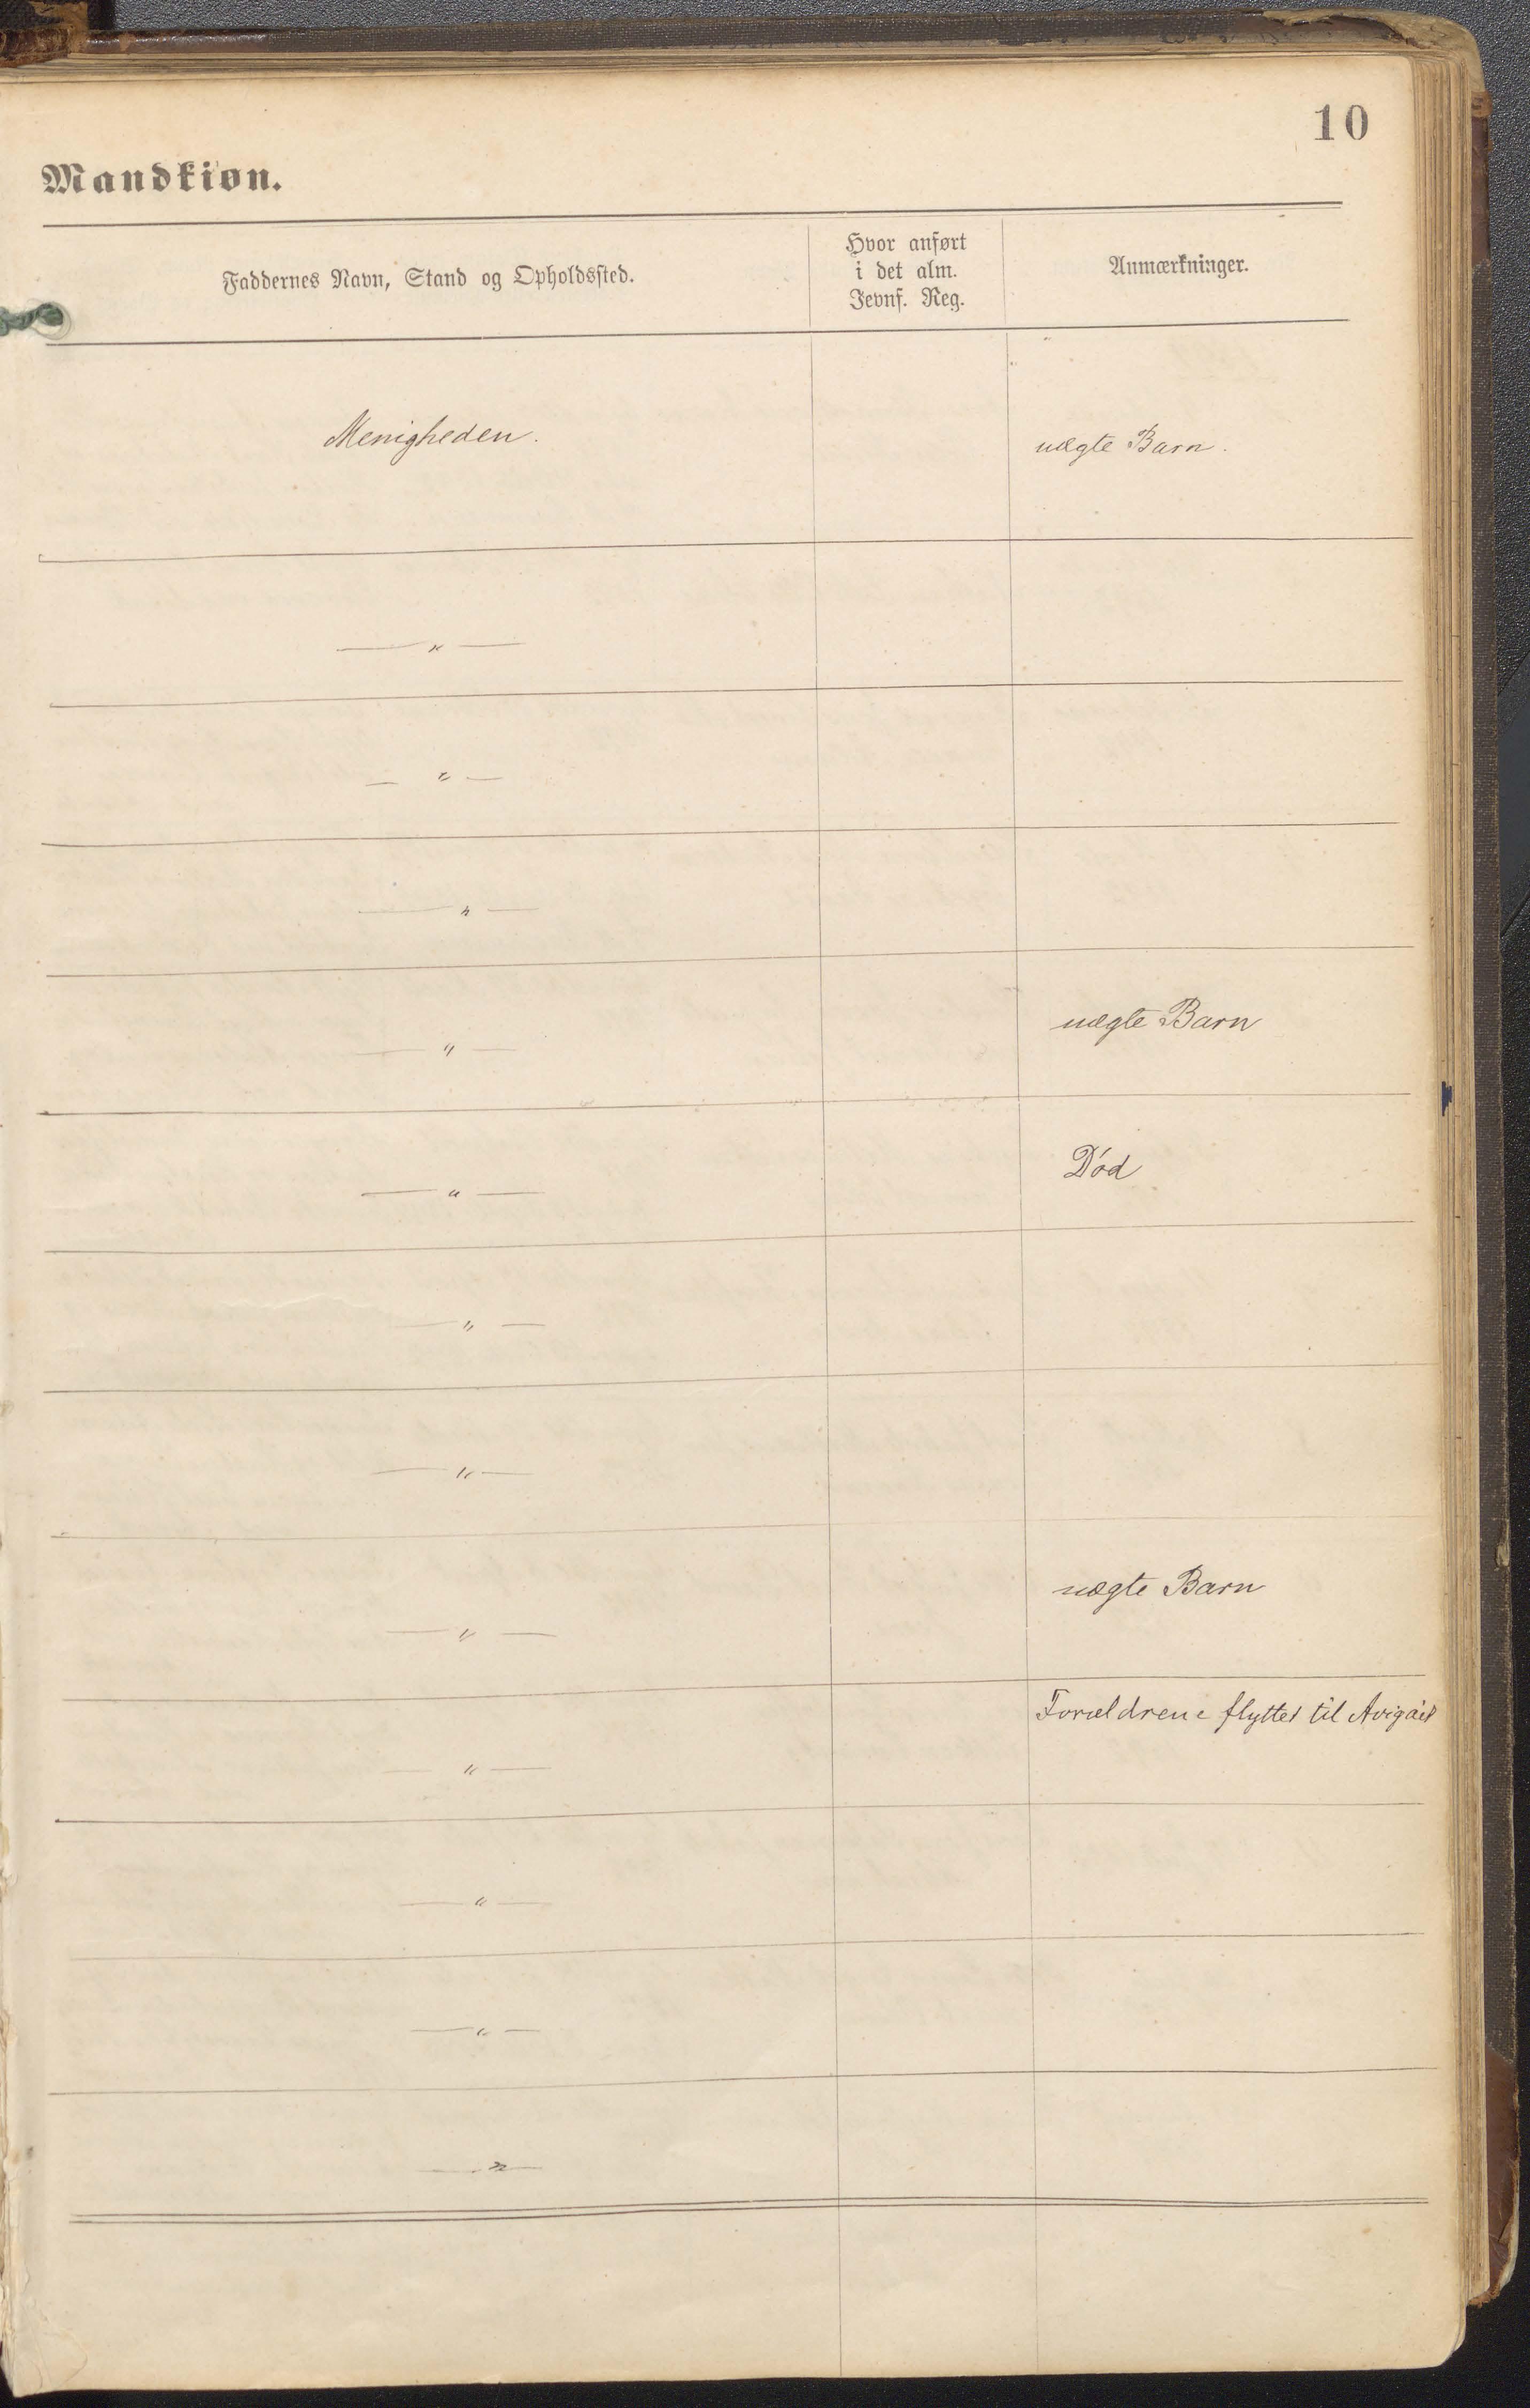 10
Mandkiøn.
Faddernes Navn, Stand og Opholdssted.
Hvor anført
i det alm.
Jevnf. Reg.
Anmærkninger.
Menigheden.
uægte Barn.
— " —
— " —
— " —
uægte Barn
— " —
Död
— " —
— " —
— " —
uægte Barn
— " —
Forældrene flyttet til Avigait
— " —
— " —
— " —
— " —